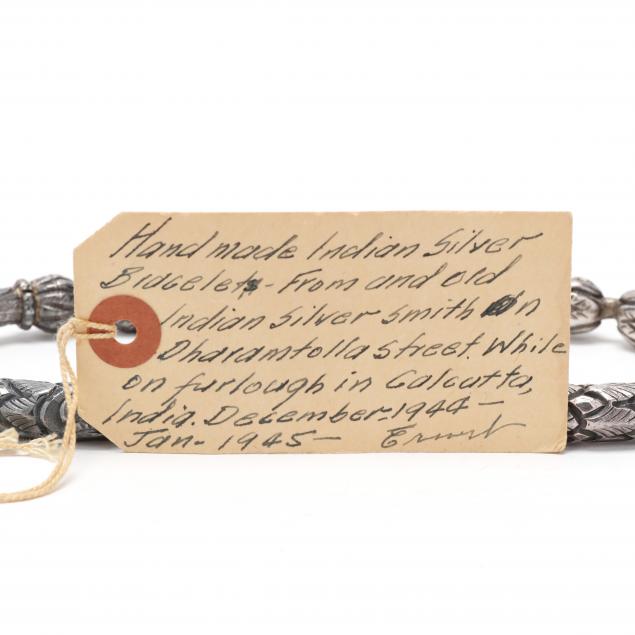 Hand made Indian Silver
Bracelets - From and old
Indian Silver smith On
Dharamtolla street. While
on furlough in Calcutta,
India. December-1944-
Jan- 1945- Ernest